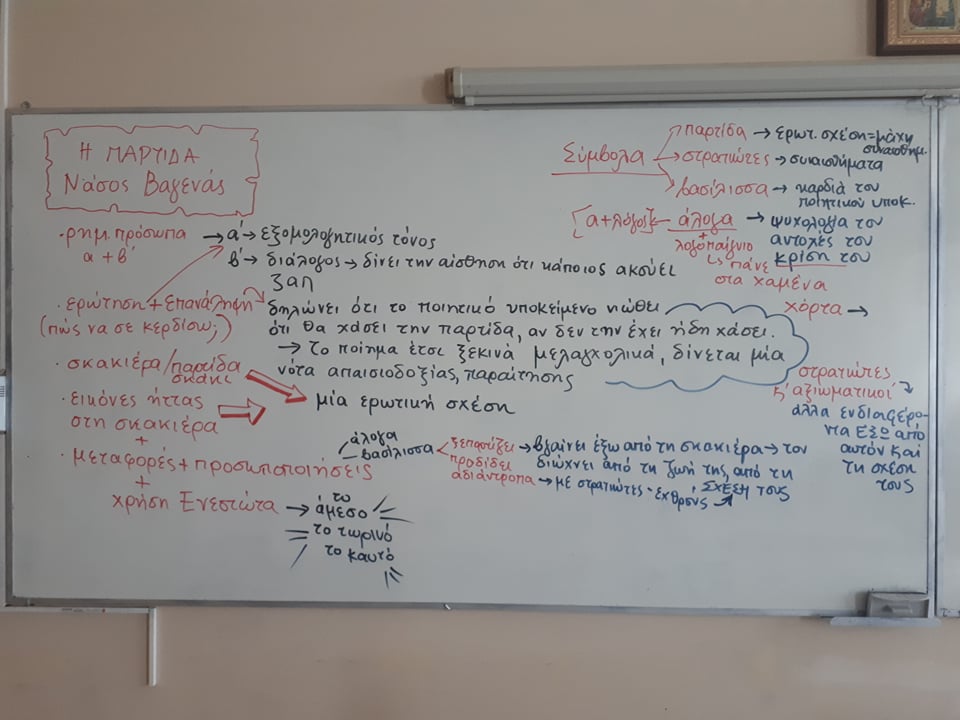 Η ΠΑΡΤΙΔΑ
Νάσος Βαγενάς
· ρημ. πρόσωπα → α΄→ εξομολογητικός τόνος
α + β΄
β΄→ διάλογος → δίνει την αίσθηση ότι κάποιος ακούει
· ερώτηση + επανάληψη
(πώς να σε κερδίσω;)
δηλώνει ότι το ποιητικό υποκείμενο νιώθει
ότι θα χάσει την παρτίδα, αν δεν την έχει ήδη χάσει.
→ Το ποίημα έτσι ξεκινά μελαγχολικά, δίνεται μία
νότα απαισιοδοξίας, παραίτησης
· σκακιέρα/παρτίδα
σκάκι
μία ερωτική σχέση
· εικόνες ήττας
στη σκακιέρα
+
· μεταφορές + προσωποποιήσεις
+
χρήση Ενεστώτα → το
άμεσο
το τωρινό
το καυτό
άλογα
βασίλισσα
ξεπορτίζει → βγαίνει έξω από τη σκακιέρα → τον
διώχνει από τη ζωή της, από τη
σχέση τους
προδίδει
αδιάντροπα → με στρατιώτες - εχθρούς
Σύμβολα
παρτίδα → ερωτ. σχέση = μάχη
συναισθημ.
στρατιώτες → συναισθήματα
βασίλισσα → καρδιά του
ποιητικού υποκ.
[α + λόγος] άλογα → ψυχολογία του
αντοχές του
κρίση του
+
λογοπαίγνιο
↳ πάνε
στα χαμένα
χόρτα →
στρατιώτες
κ' αξιωματικοί
άλλα ενδιαφέρο-
ντα έξω από
αυτόν και
τη σχέση
τους